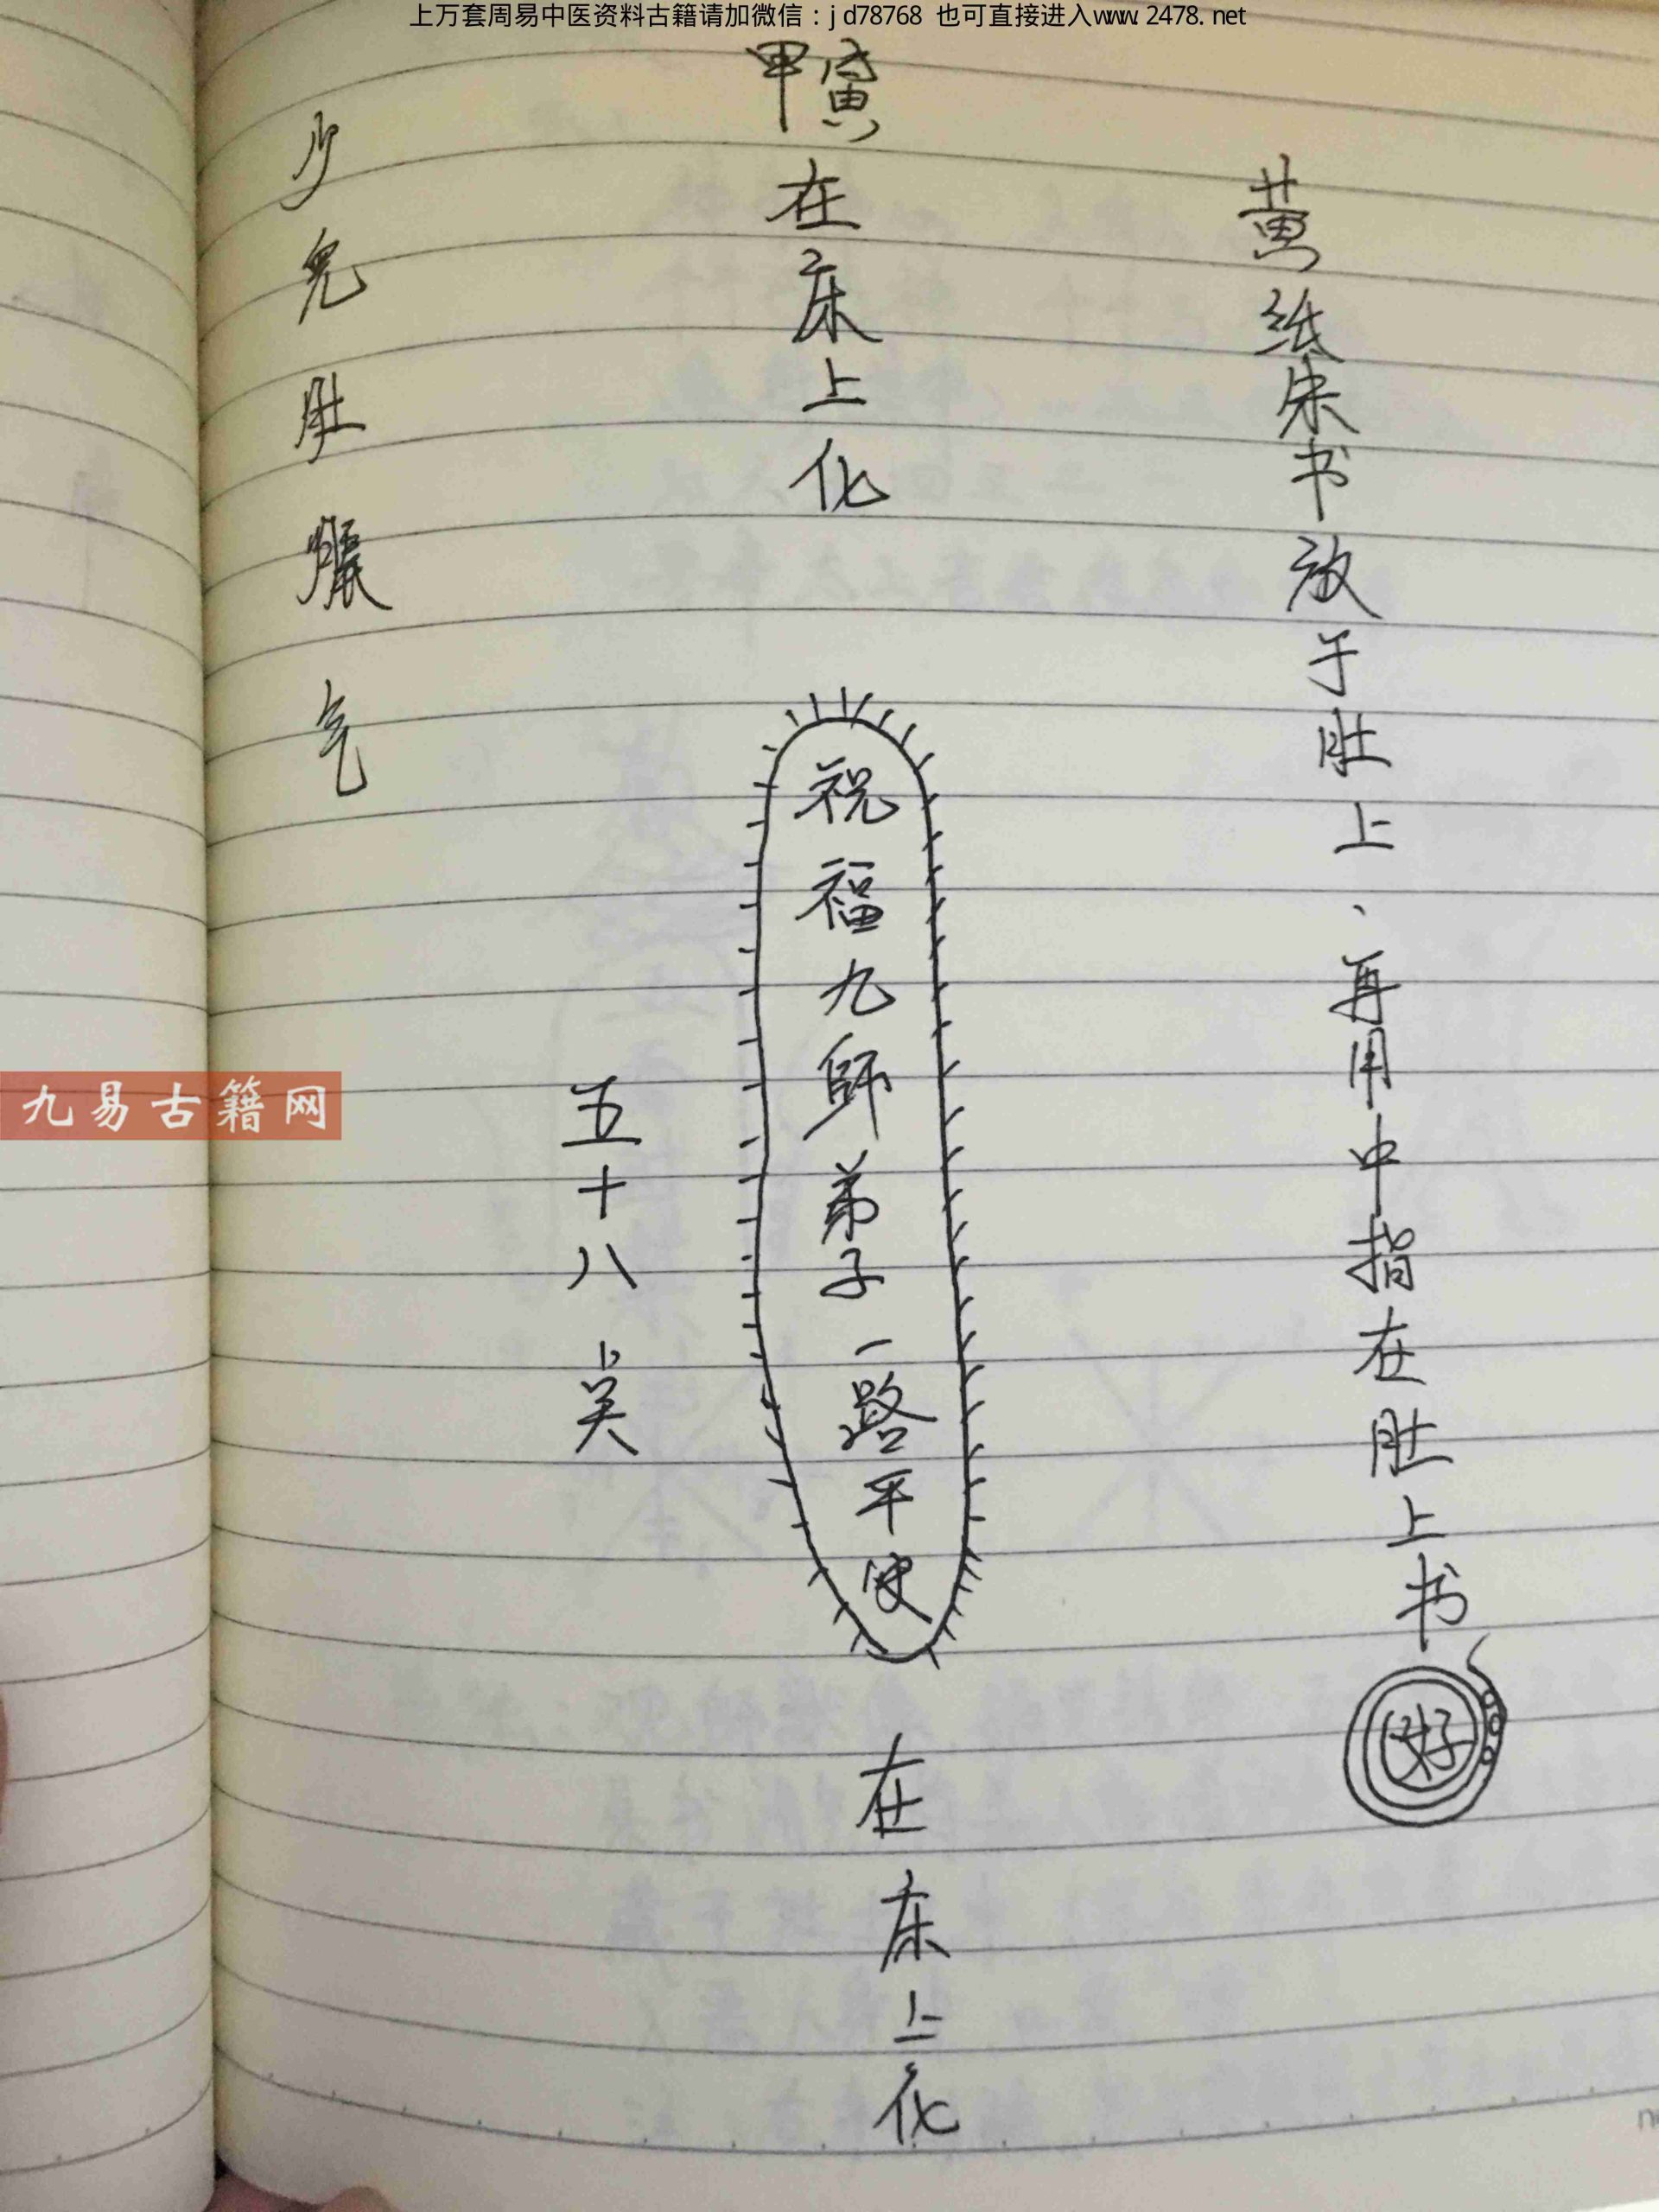 上万套周易中医资料古籍请加微信：jd78768 也可直接进入www.2478.net
黄纸朱书放于肚上、再用中指在肚上书
好
在床上化
祝福九師弟子一路平安
在床上化
五十八
少儿肚胀气
九易古籍网